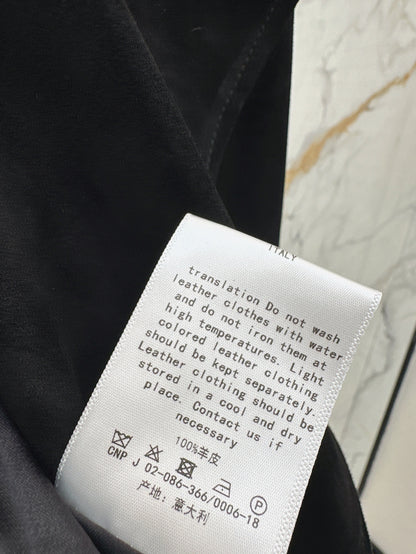 ITALY
translation Do not wash
leather clothes with water
and do not iron them at
high temperatures. Light
colored leather clothing
should be kept separately.
Leather clothing should be
stored in a cool and dry
place. Contact us if
necessary
100%羊皮
P
CNP J 02-086-366/0006-18
产地:意大利